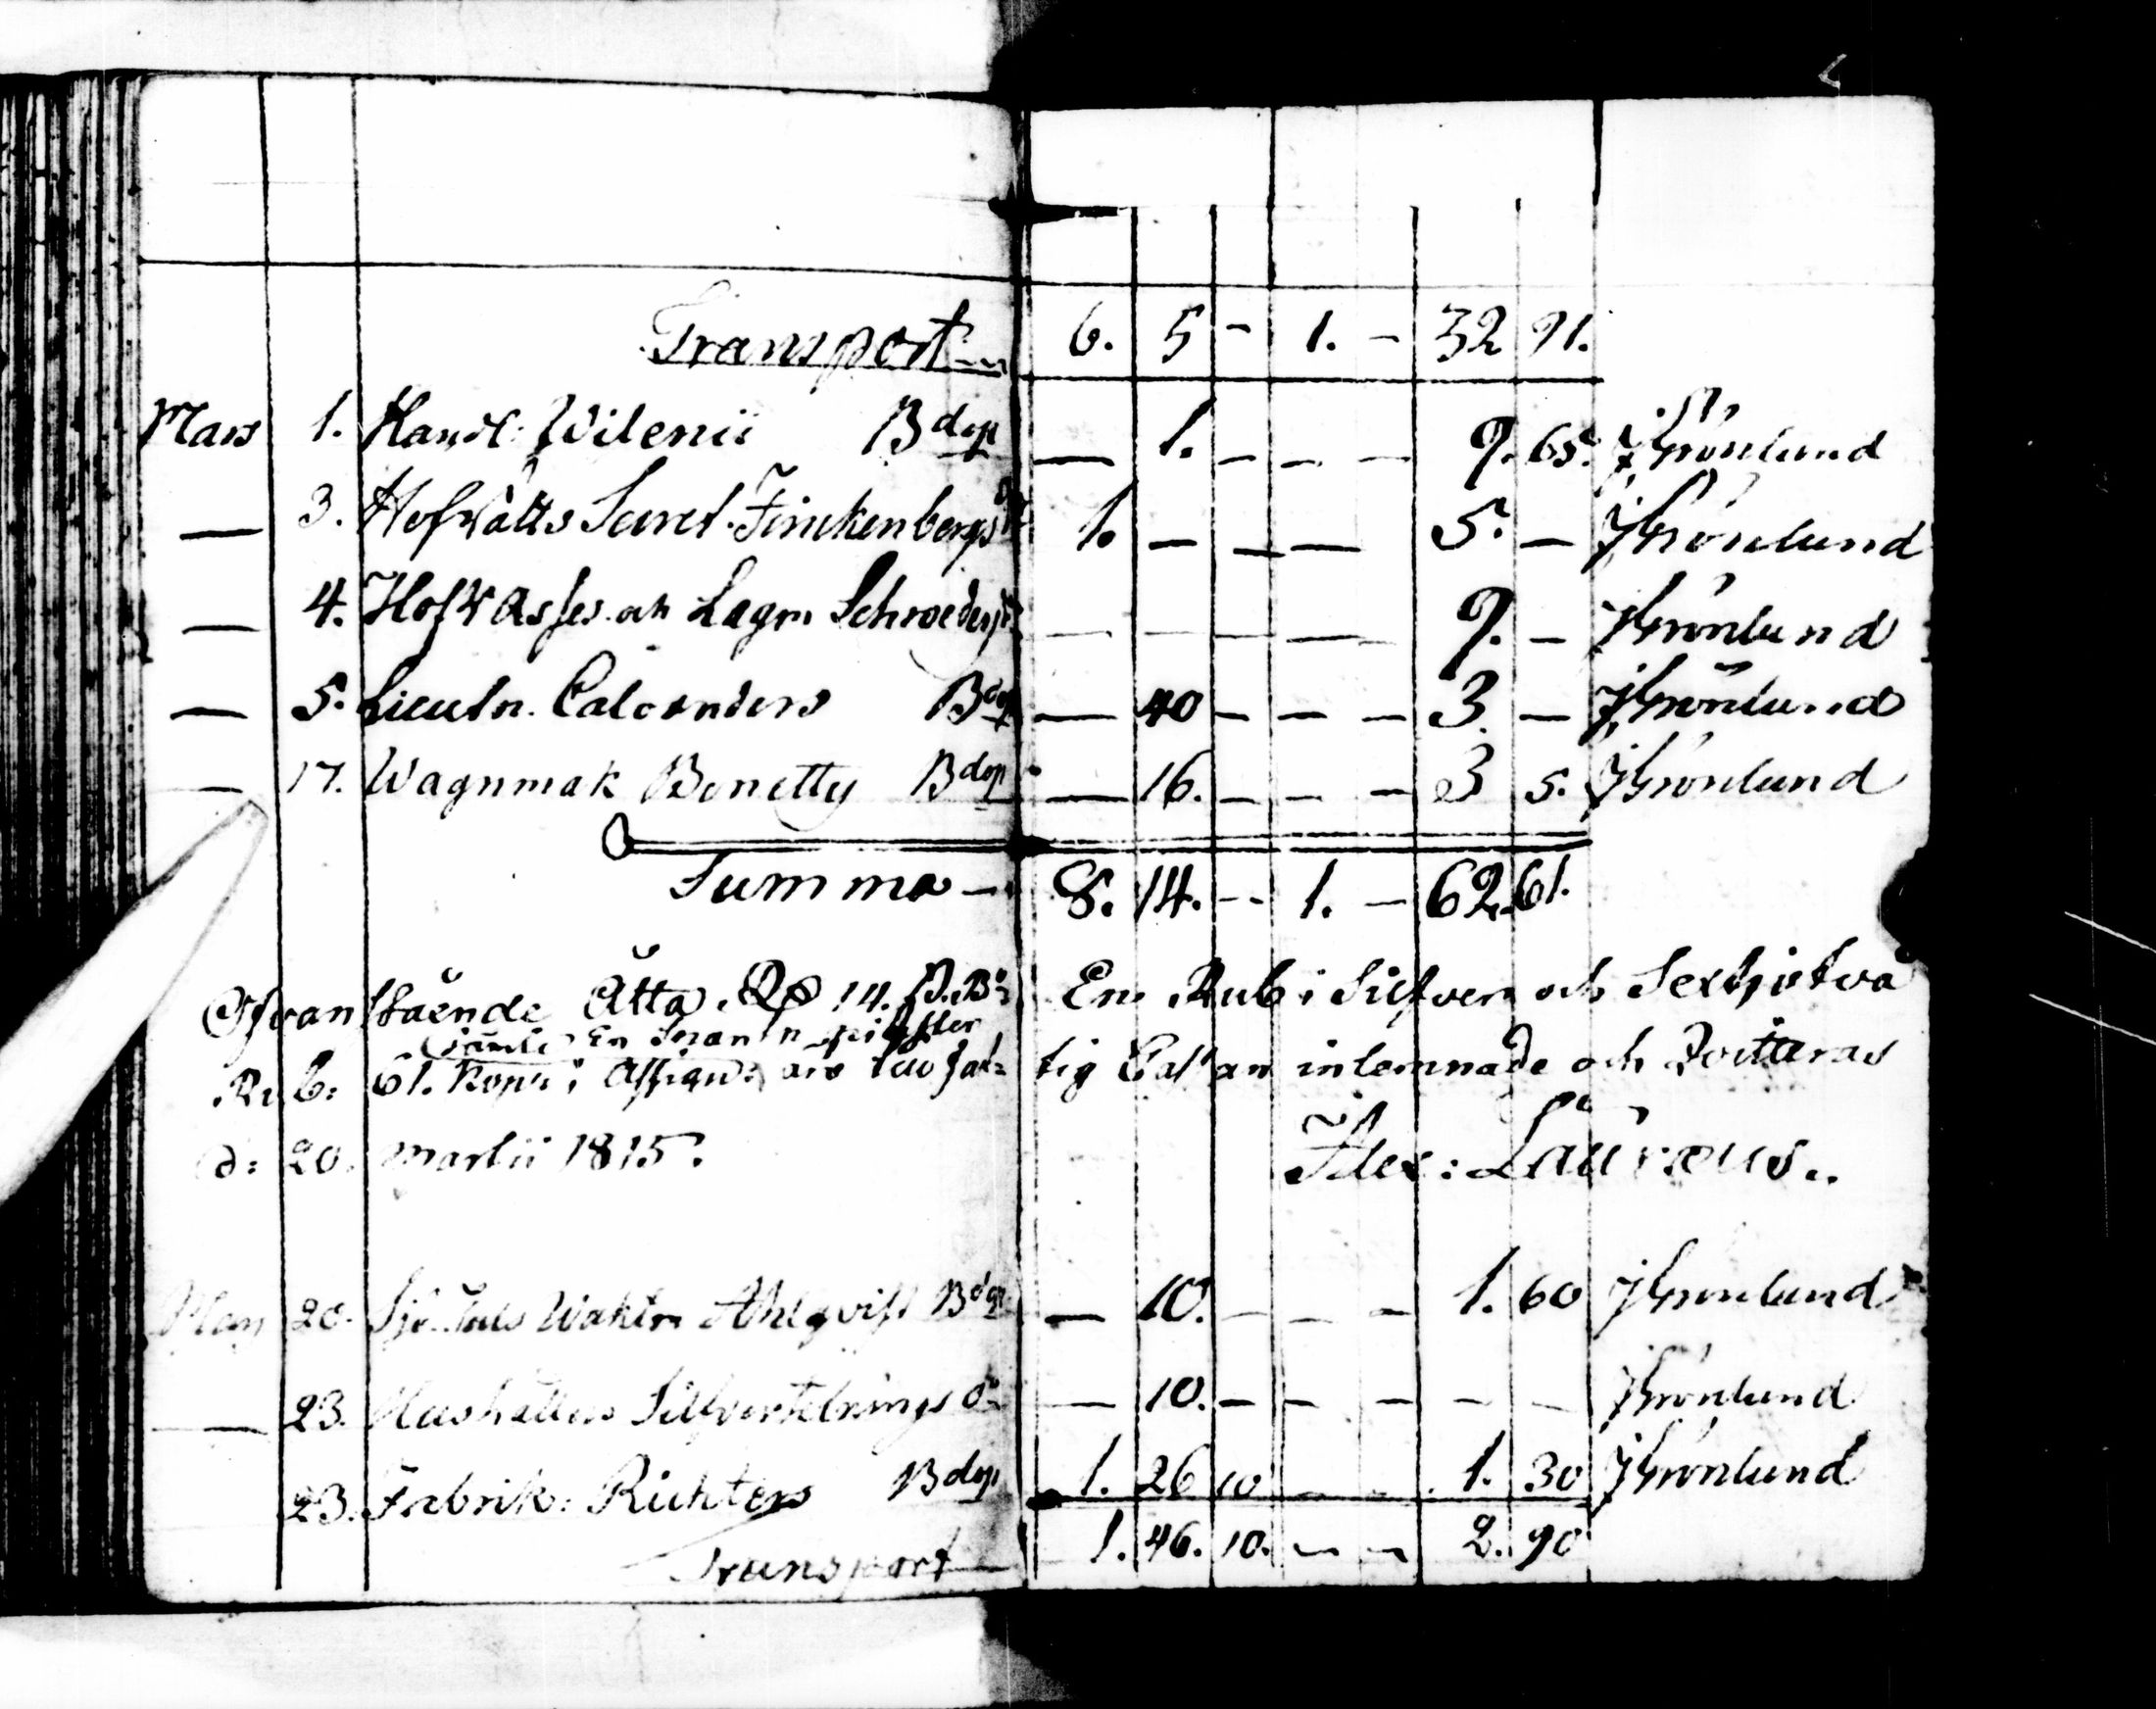 Transport 6. 5 - 1. - 32 91.
Mars 1. Handl: Wilenii Bdgr — 1. - - - 9. 65. J Grönlund
— 3. Hofrätts Secret. Finckenbergs 1. — — — 5. — J Grönlund
— 4. Hofr Asses. och Lagm Schroeders — — — — 9. — J Grönlund
— 5. Lieutn. Calonders Bdgr — 40 - - - 3. — J Grönlund
— 17. Wagnmak Bonetty Bdgr — 16. - - - 3 5. J Grönlund
Summa — 8. 14. - - 1. - 62. 61.
Ofvanstående Åtta Rd 14. s. Bo: En Rub i Silfver och Sextjotvå
Rub: 61. Kop: i Assign: är tuo fat- tig Cassan inlemnade och Qvitteras
d: 20. Martii 1815. Alex: Lauræus.
Mars 20. Waktm Ahlqvist Bdgr — 10. - - - 1. 60 J Grönlund
— 23. Silfvertelnings do — 10. - - - - - J Grönlund
23. Fabrik: Richters Bdgr 1. 26 10 - - 1. 30 J Grönlund
Transport — 1. 46. 10. - - 2. 90